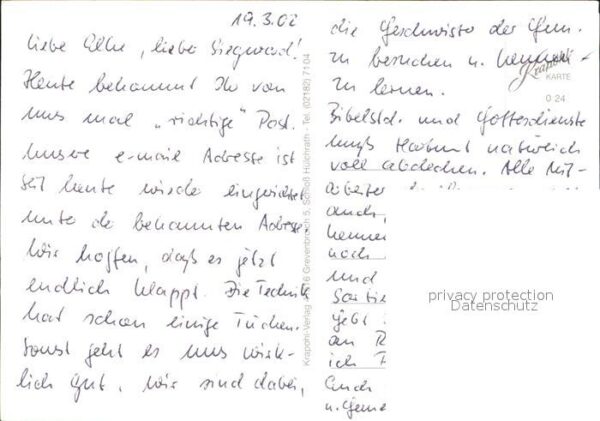 19.3.02
liebe Elke, lieber Siegward!
Heute bekommt Ihr von
uns mal „richtige" Post.
Unsere e-mail Adresse ist
seit heute wieder eingerichtet
unter der bekannten Adresse.
Wir hoffen, daß es jetzt
endlich klappt. Die Technik
hat schon einige Tücken.
Sonst geht es uns wirk-
lich gut. Wir sind dabei,
Krapohl-Verlag Grevenbroich 5, Schloß Hülchrath · Tel. (02182) 7104
die Geschwister der Gem.
zu besuchen u. kennen
zu lernen.
Krapohl
KARTE
O 24
Bibelstd. und Gottesdienste
muß Hartmut natürlich
voll abdecken. Alle Mit-
arbeiter
auch,
kennen
noch
und
jetzt
an
ich
Euch
u. Geme
privacy protection
Datenschutz